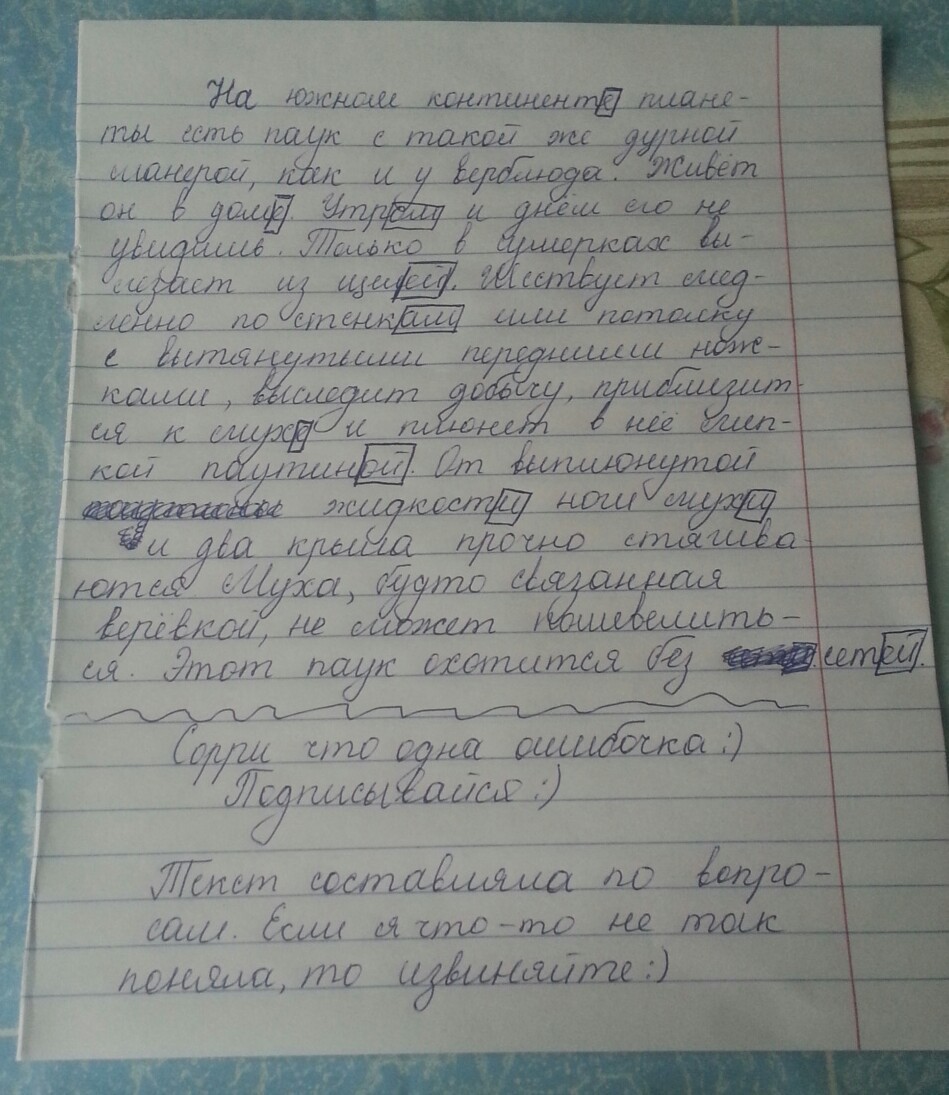 На южном континенте плане-
ты есть паук с такой же дурной
манерой, как и у верблюда. Живёт
он в доме. Утром и днём его не
увидишь. Только в сумерках вы-
лезает из щелей. Шествует мед-
ленно по стенкам или потолку
с вытянутыми передними нож-
ками, выследит добычу, приблизит-
ся к мухе и плюнет в неё лип-
кой паутиной. От выплюнутой
жидкости ноги мухи
и два крыла прочно стягива-
ются Муха, будто связанная
верёвкой, не может пошевелить-
ся. Этот паук охотится без сетей.
Сорри что одна ошибочка :)
Подписывайся :)
Текст составляла по вопро-
сам. Если я что-то не так
поняла, то извиняйте :)